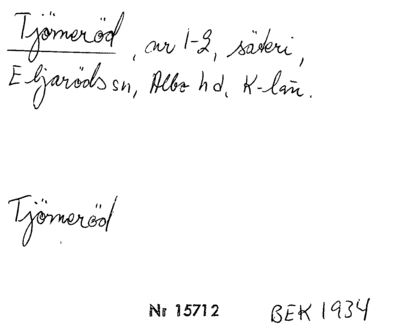 Tjömeröd, nr 1-2, säteri,
Eljaröds sn, Albo hd, K-län.
Tjömeröd
Nr 15712 BEK 1934